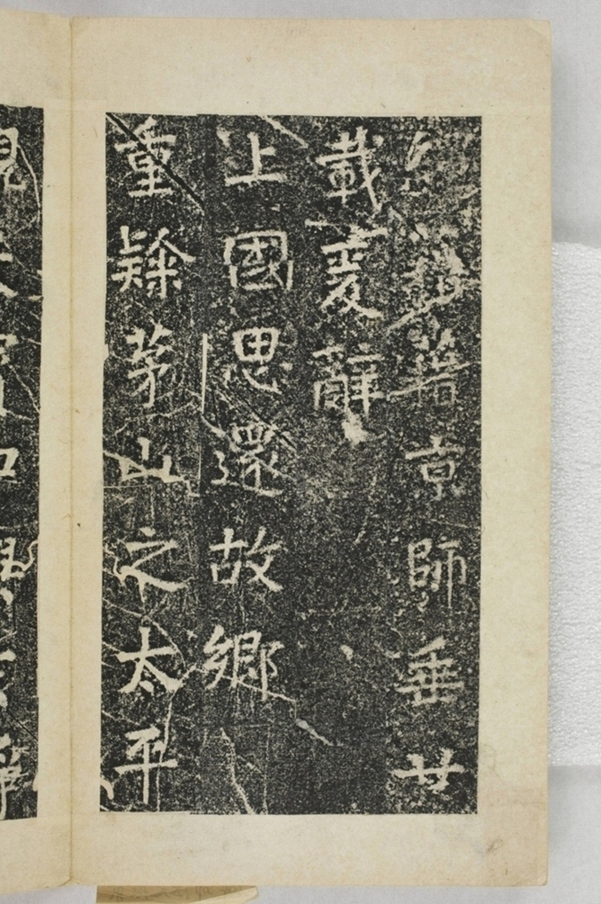 籍籍京師垂廿
載爰辭
上國思還故鄉
重隸茅山之太平